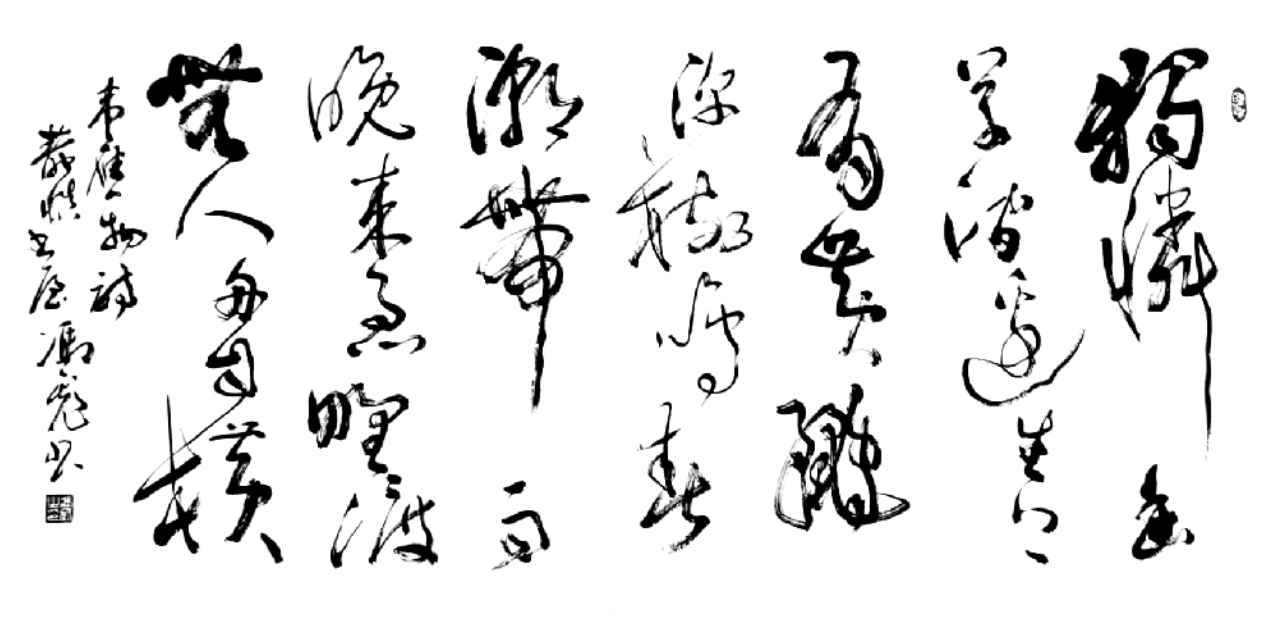 獨憐幽
草澗邊生上
有黃鸝
深樹鳴春
潮帶雨
晚來急野渡
無人舟自橫
韋應物詩
慎書屋馮彪書